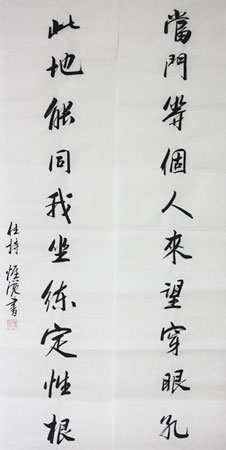 當門等個人來望穿眼孔
此地能同我坐練定性根
住持
書